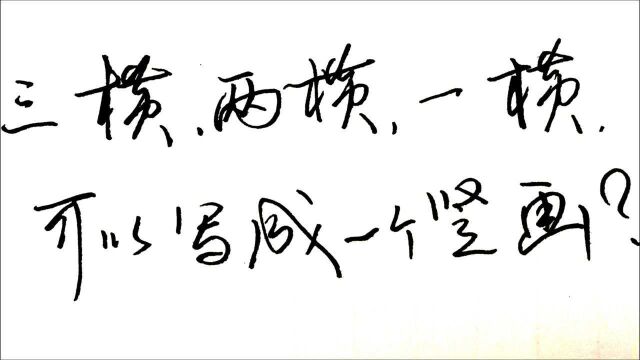 三横、两横、一横.
可以写成一个竖画?